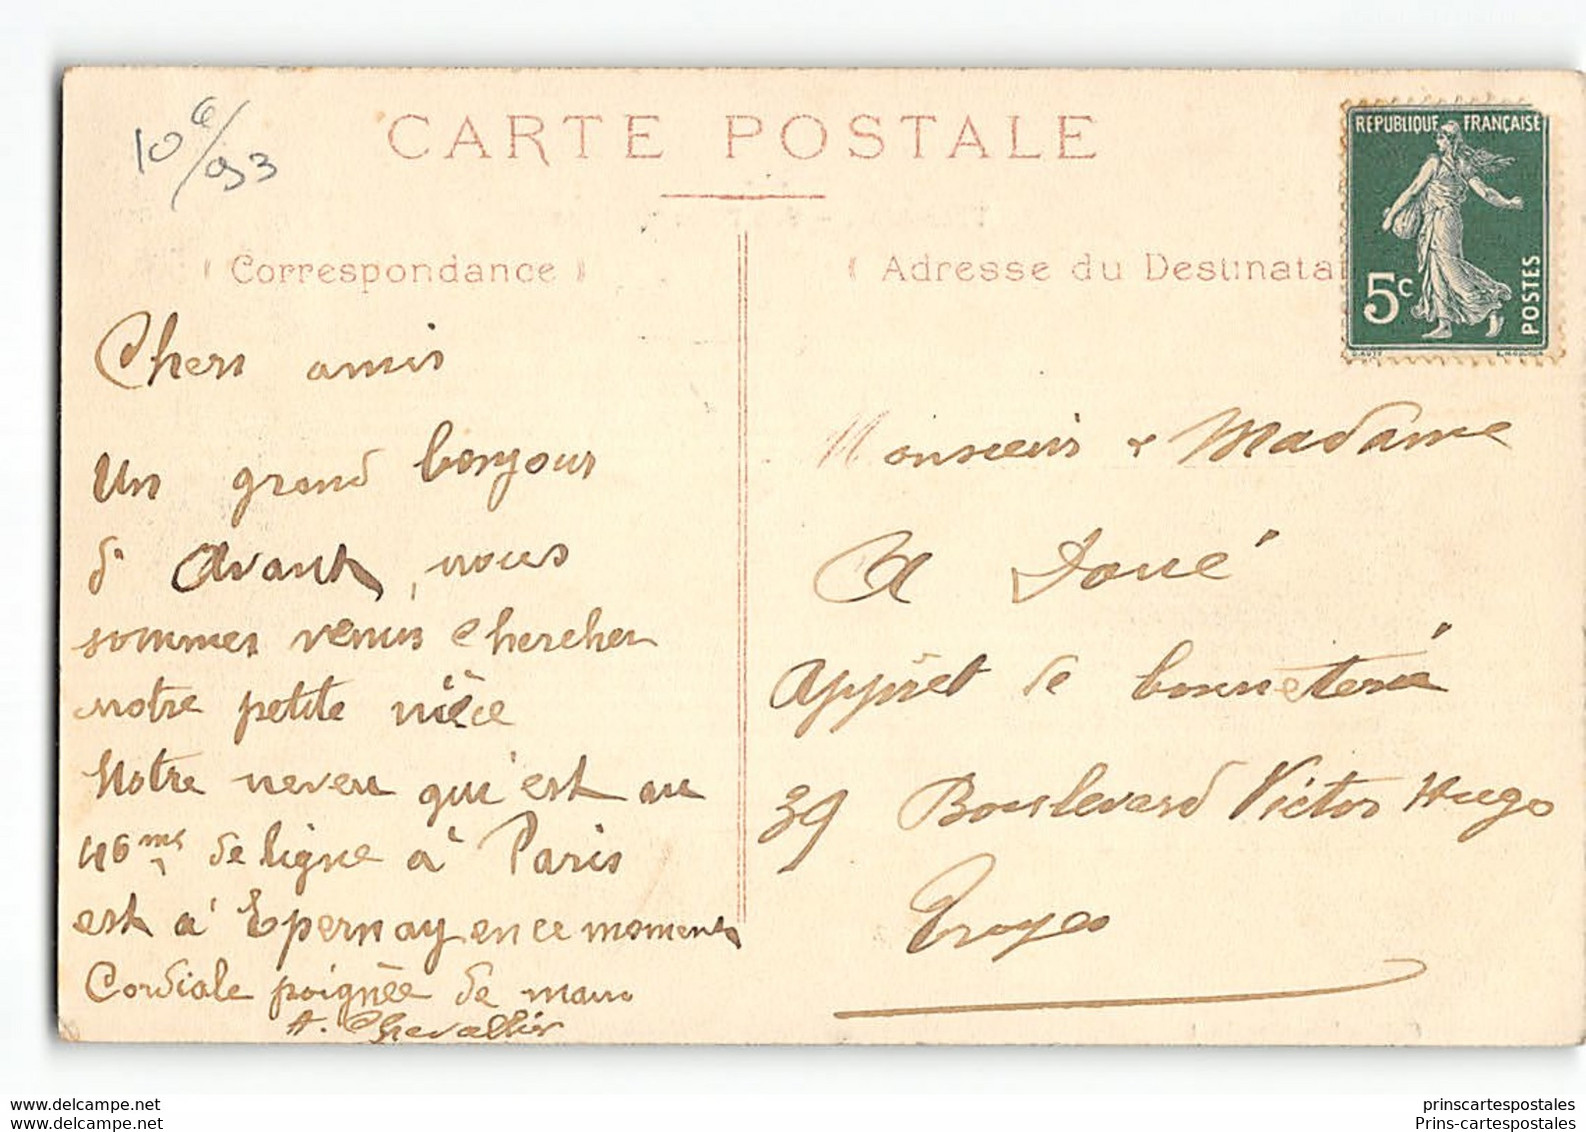 10€/93
CARTE POSTALE
Correspondance
Chers amis
Un grand bonjour
d'Avant, nous
sommes venus chercher
notre petite nièce
Notre neveu qui est au
46me de ligne à Paris
est à Epernay en ce moment
Cordiale poignée de main
A. Chevallier
REPUBLIQUE FRANÇAISE
5c
POSTES
Adresse du Destinatai
Monsieur & Madame
A Doué
Apprêt de bonneterie
39 Boulevard Victor Hugo
Troyes
delcampe.net
prinscartespostales
Prins-cartespostales